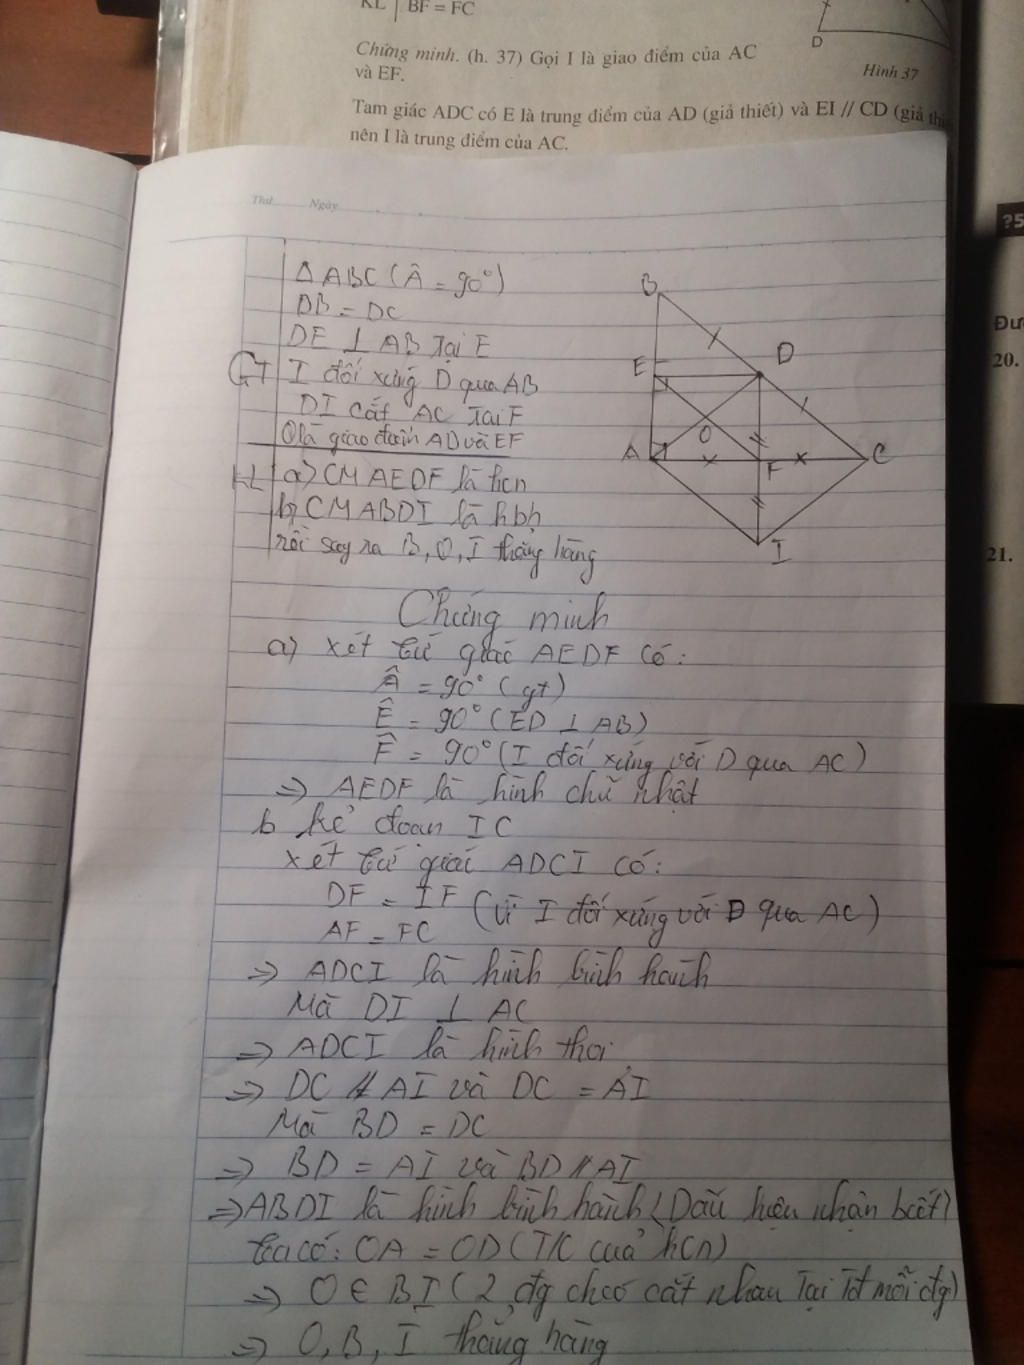 KL | BF = FC
Chứng minh. (h. 37) Gọi I là giao điểm của AC
và EF.
Hình 37
D
Tam giác ADC có E là trung điểm của AD (giả thiết) và EI // CD (giả
nên I là trung điểm của AC.
Thứ ...... Ngày
?5
Đư
20.
21.
Δ ABC (Â = 90°)
DB = DC
DE ⊥ AB Tại E
GT I đối xứng D qua AB
DI cắt AC Tại F
O là giao điểm AD và EF
KL a) CM AEDF là hcn
b) CM ABDI là hbh
rồi suy ra B, O, I thẳng hàng
B
E D
O
A F C
I
Chứng minh
a) xét tứ giác AEDF có:
Â = 90° (gt)
Ê = 90° (ED ⊥ AB)
F̂ = 90° (I đối xứng với D qua AC)
=> AEDF là hình chữ nhật
b kẻ đoạn IC
xét tứ giác ADCI có:
DF = IF (vì I đối xứng với D qua AC)
AF = FC
=> ADCI là hình bình hành
Mà DI ⊥ AC
=> ADCI là hình thoi
=> DC // AI và DC = AI
Mà BD = DC
=> BD = AI và BD // AI
=> ABDI là hình bình hành (Dấu hiệu nhận biết)
ta có: OA = OD (T/C của hcn)
=> O ∈ BI (2 đg chéo cắt nhau Tại Tđ mỗi đg)
=> O, B, I thẳng hàng